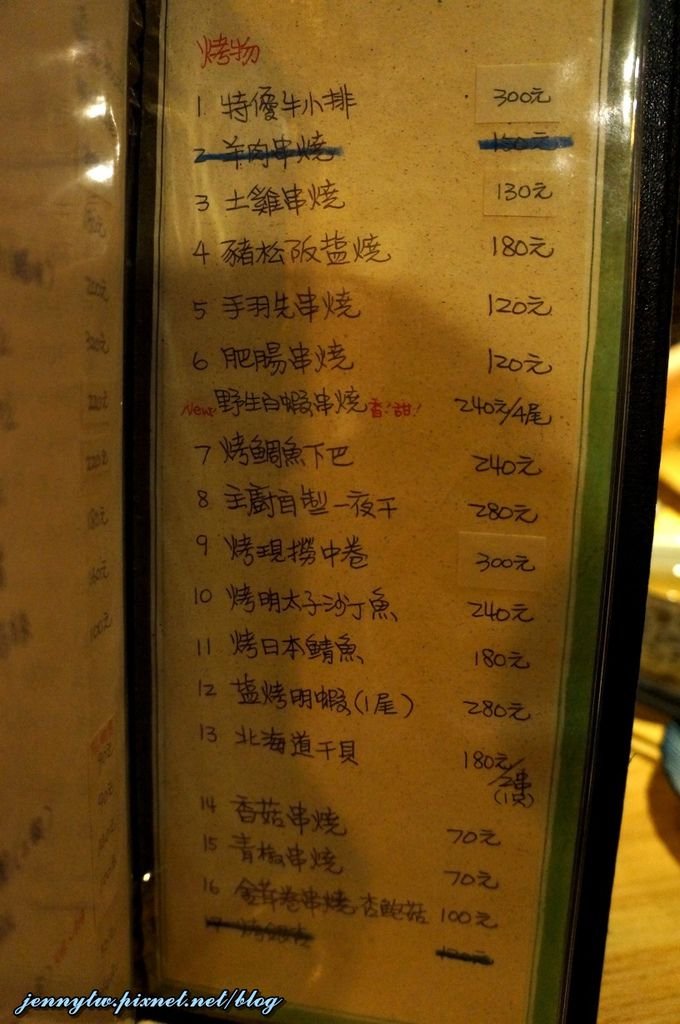 烤物
1 特優牛小排 300元
2 羊肉串燒
3 土雞串燒 130元
4 豬松阪盐燒 180元
5 手羽先串燒 120元
6 肥腸串燒 120元
New 野生白蝦串燒 香!甜! 240元/4尾
7 烤鯛魚下巴 240元
8 主廚自製一夜干 280元
9 烤現撈中卷 300元
10 烤明太子沙丁魚 240元
11 烤日本鯖魚 180元
12 盐烤明蝦(1尾) 280元
13 北海道干貝 180元/2串
14 香菇串燒 70元
15 青椒串燒 70元
16 杏鮑菇 100元
jennytw.pixnet.net/blog